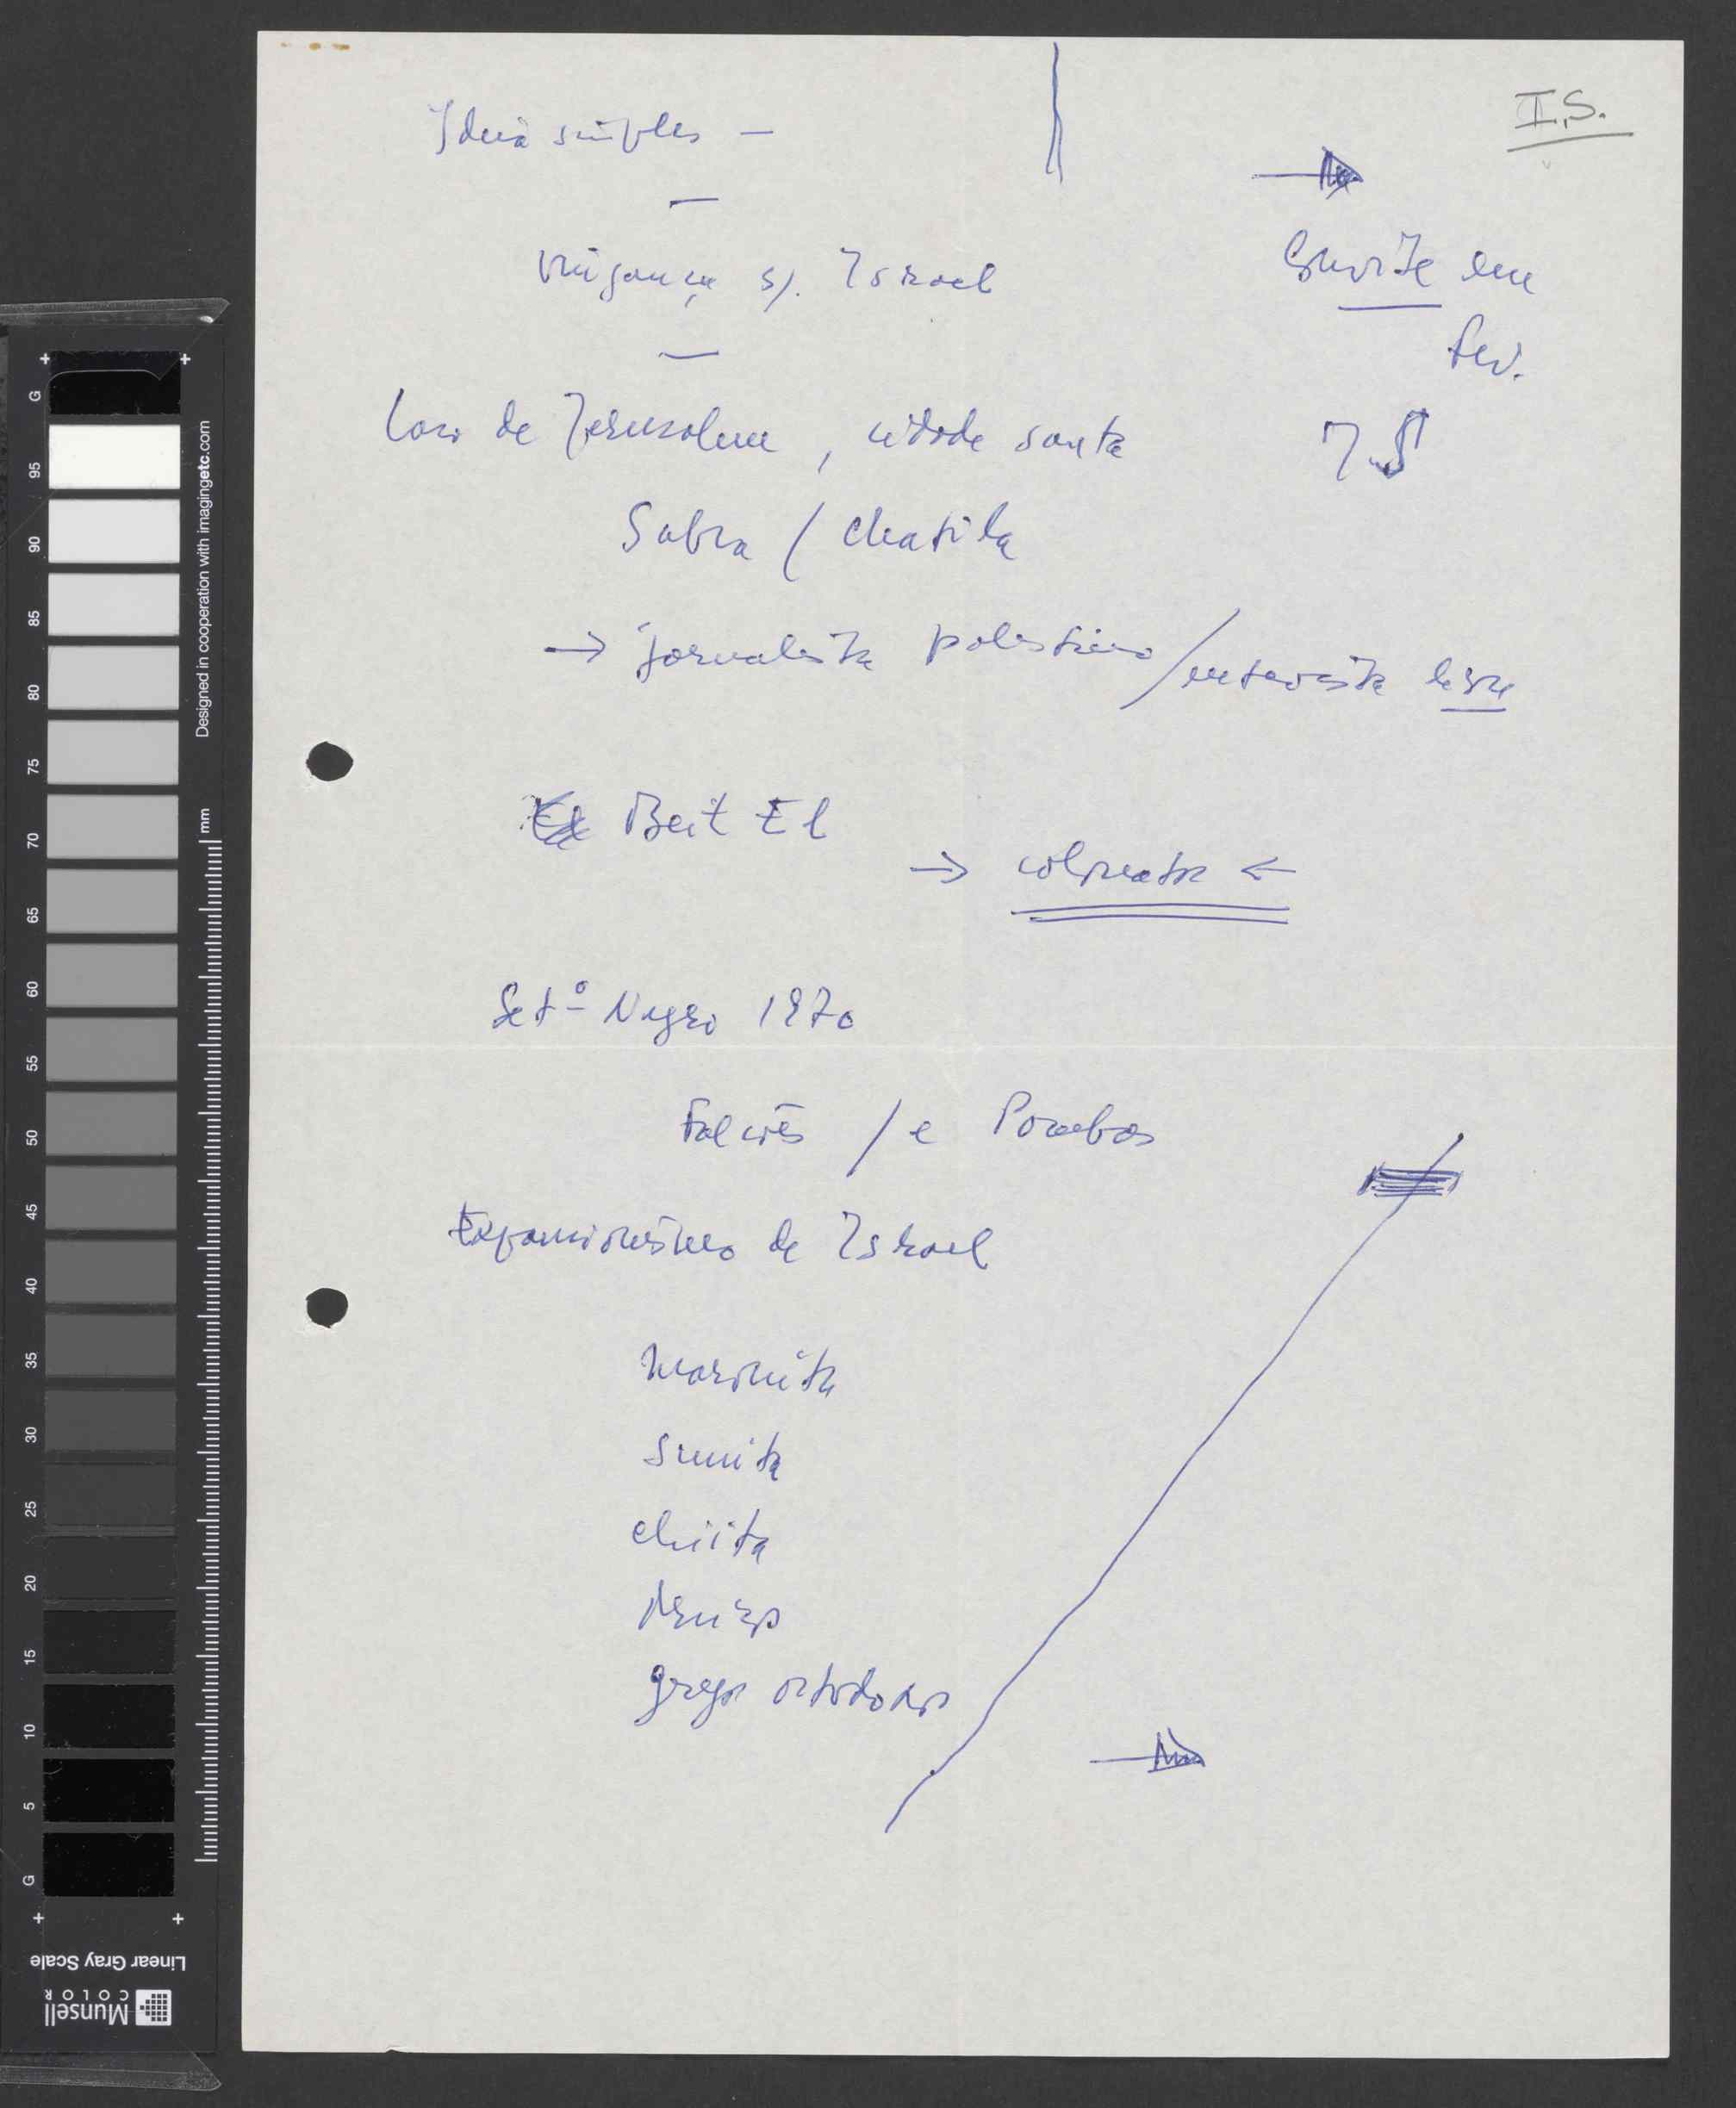 I.S.
Ideia simples —
Vingança s/. Israel
Convite em
Fev.
Caso de Jerusalem, cidade santa
I.S
Sabra / Chatila
→ jornalista palestino / entrevista
Beit El
→ colonato ←
Setº Negro 1970
Falcões / e Pombos
Expansionismo de Israel
maronita
sunita
chiita
druzo
grego ortodoxo
G
95
90
85
80
75
70
65
60
55
50
45
40
35
30
25
20
15
10
5
G
mm
Designed in cooperation with imagingetc.com
Linear Gray Scale
Munsell
COLOR